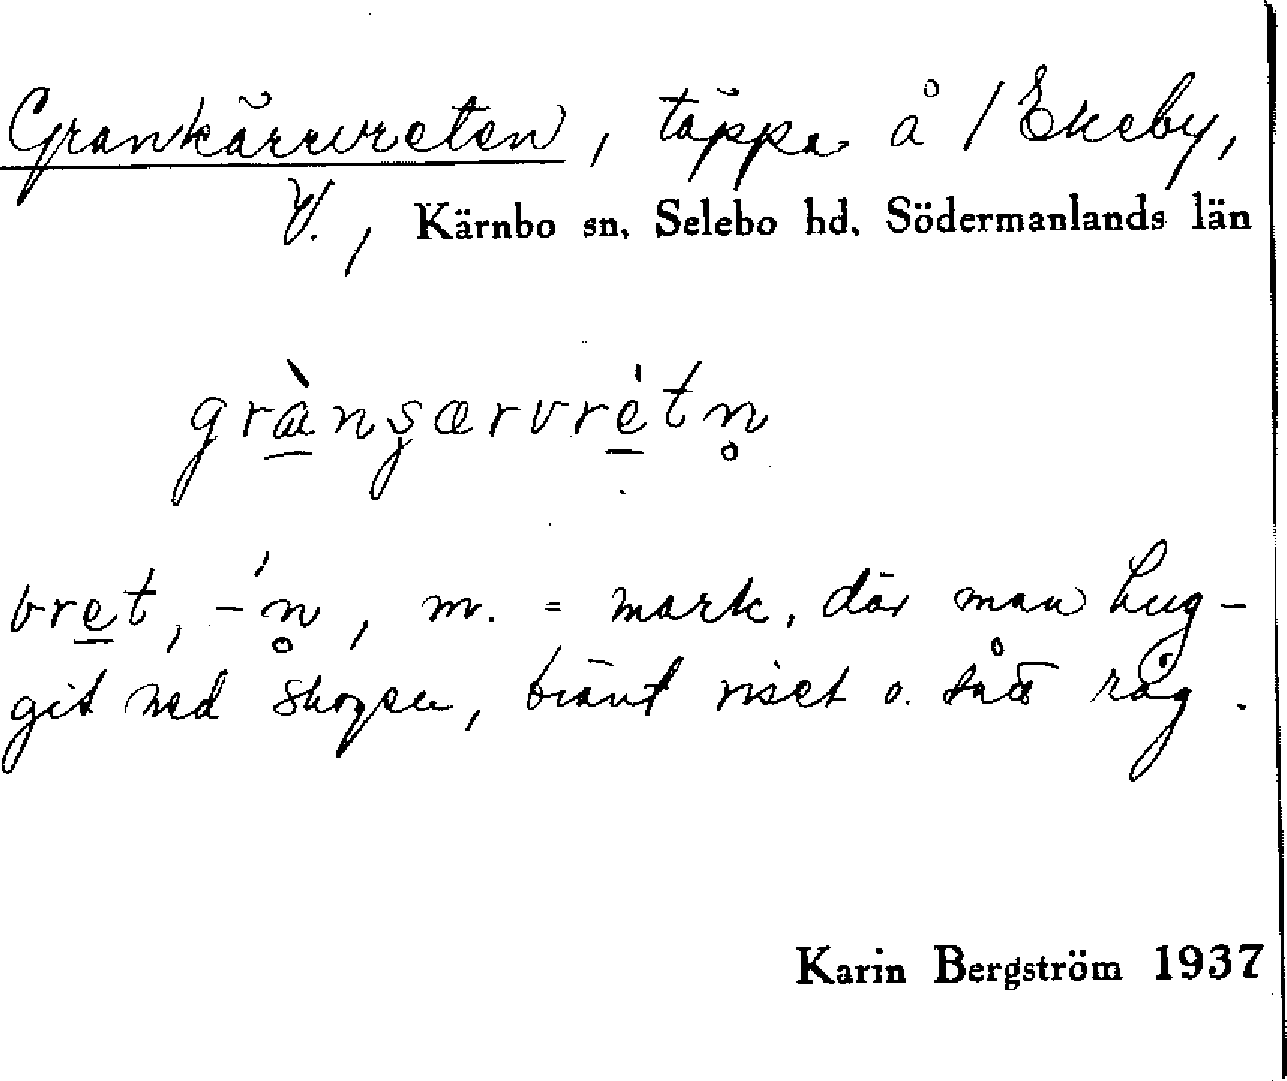 Grankärrvreten, täppa å / Ekeby,
V., Kärnbo sn, Selebo hd, Södermanlands län
grànʂærvrétn̥
vret, -'n̥, m. = mark, där man hug-
git ned skogen, bränt riset o. sått råg.
Karin Bergström 1937